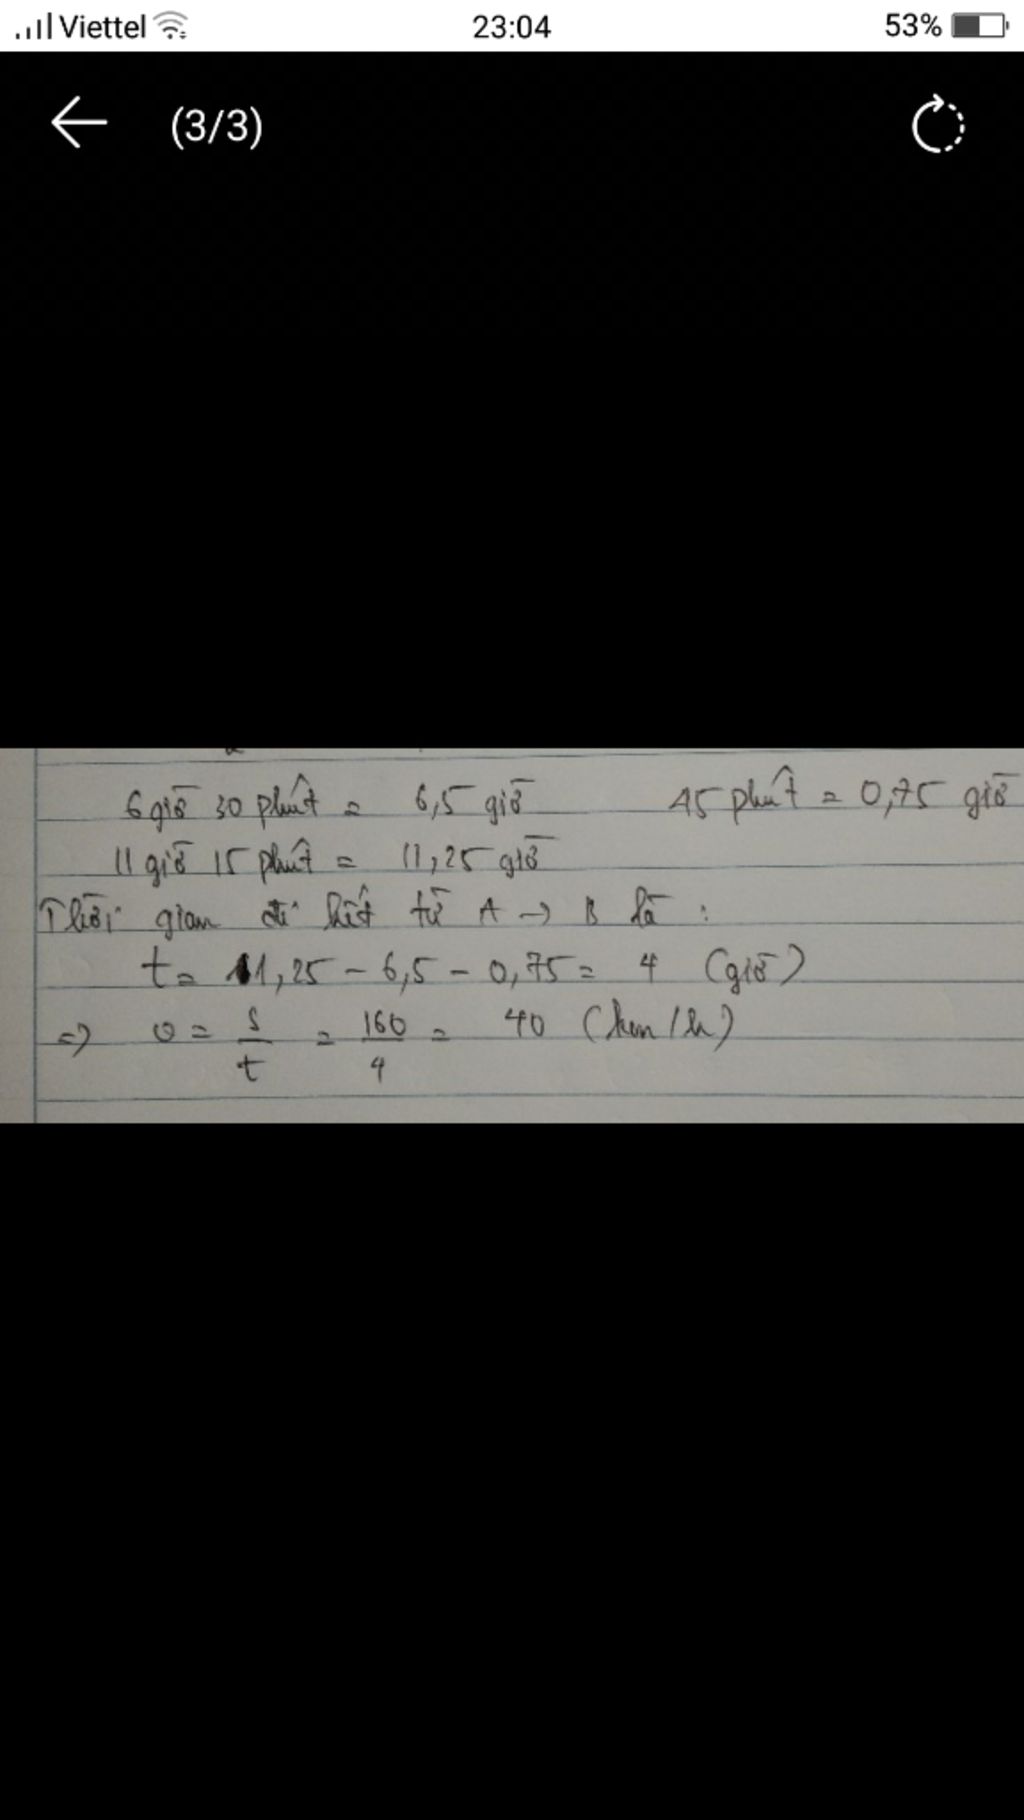 Viettel 23:04 53%
(3/3)
6 giờ 30 phút = 6,5 giờ 45 phút = 0,75 giờ
11 giờ 15 phút = 11,25 giờ
Thời gian đi hết từ A → B là :
t = 11,25 - 6,5 - 0,75 = 4 (giờ)
=> v = s/t = 160/4 = 40 (km/h)